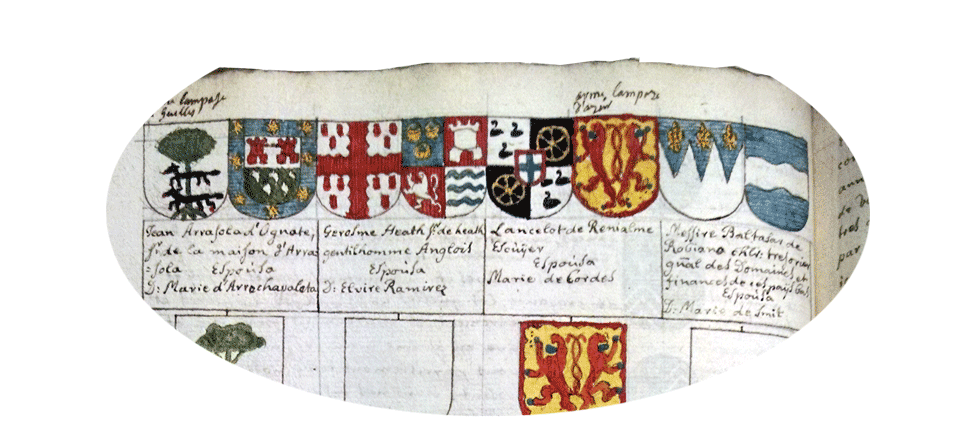 lampasé
armé lampaze
d'azur
Jean Arrasola d'Ognate,
Sr. de la maison d'Arra
:sola Espousa
D: Marie d'Arrochavaleta
Gerosme Heath Sr. de heath
gentilhomme Anglois
Espousa
D: Elvire Ramirez
Lancelot de Renialme
Escüyer
Espousa
Marie de Cordes
Messire Baltasar de
Robiano chlr: tresorier
gñal des Domaines et
finances de ces pays bas
Espousa
D: Marie de Smit